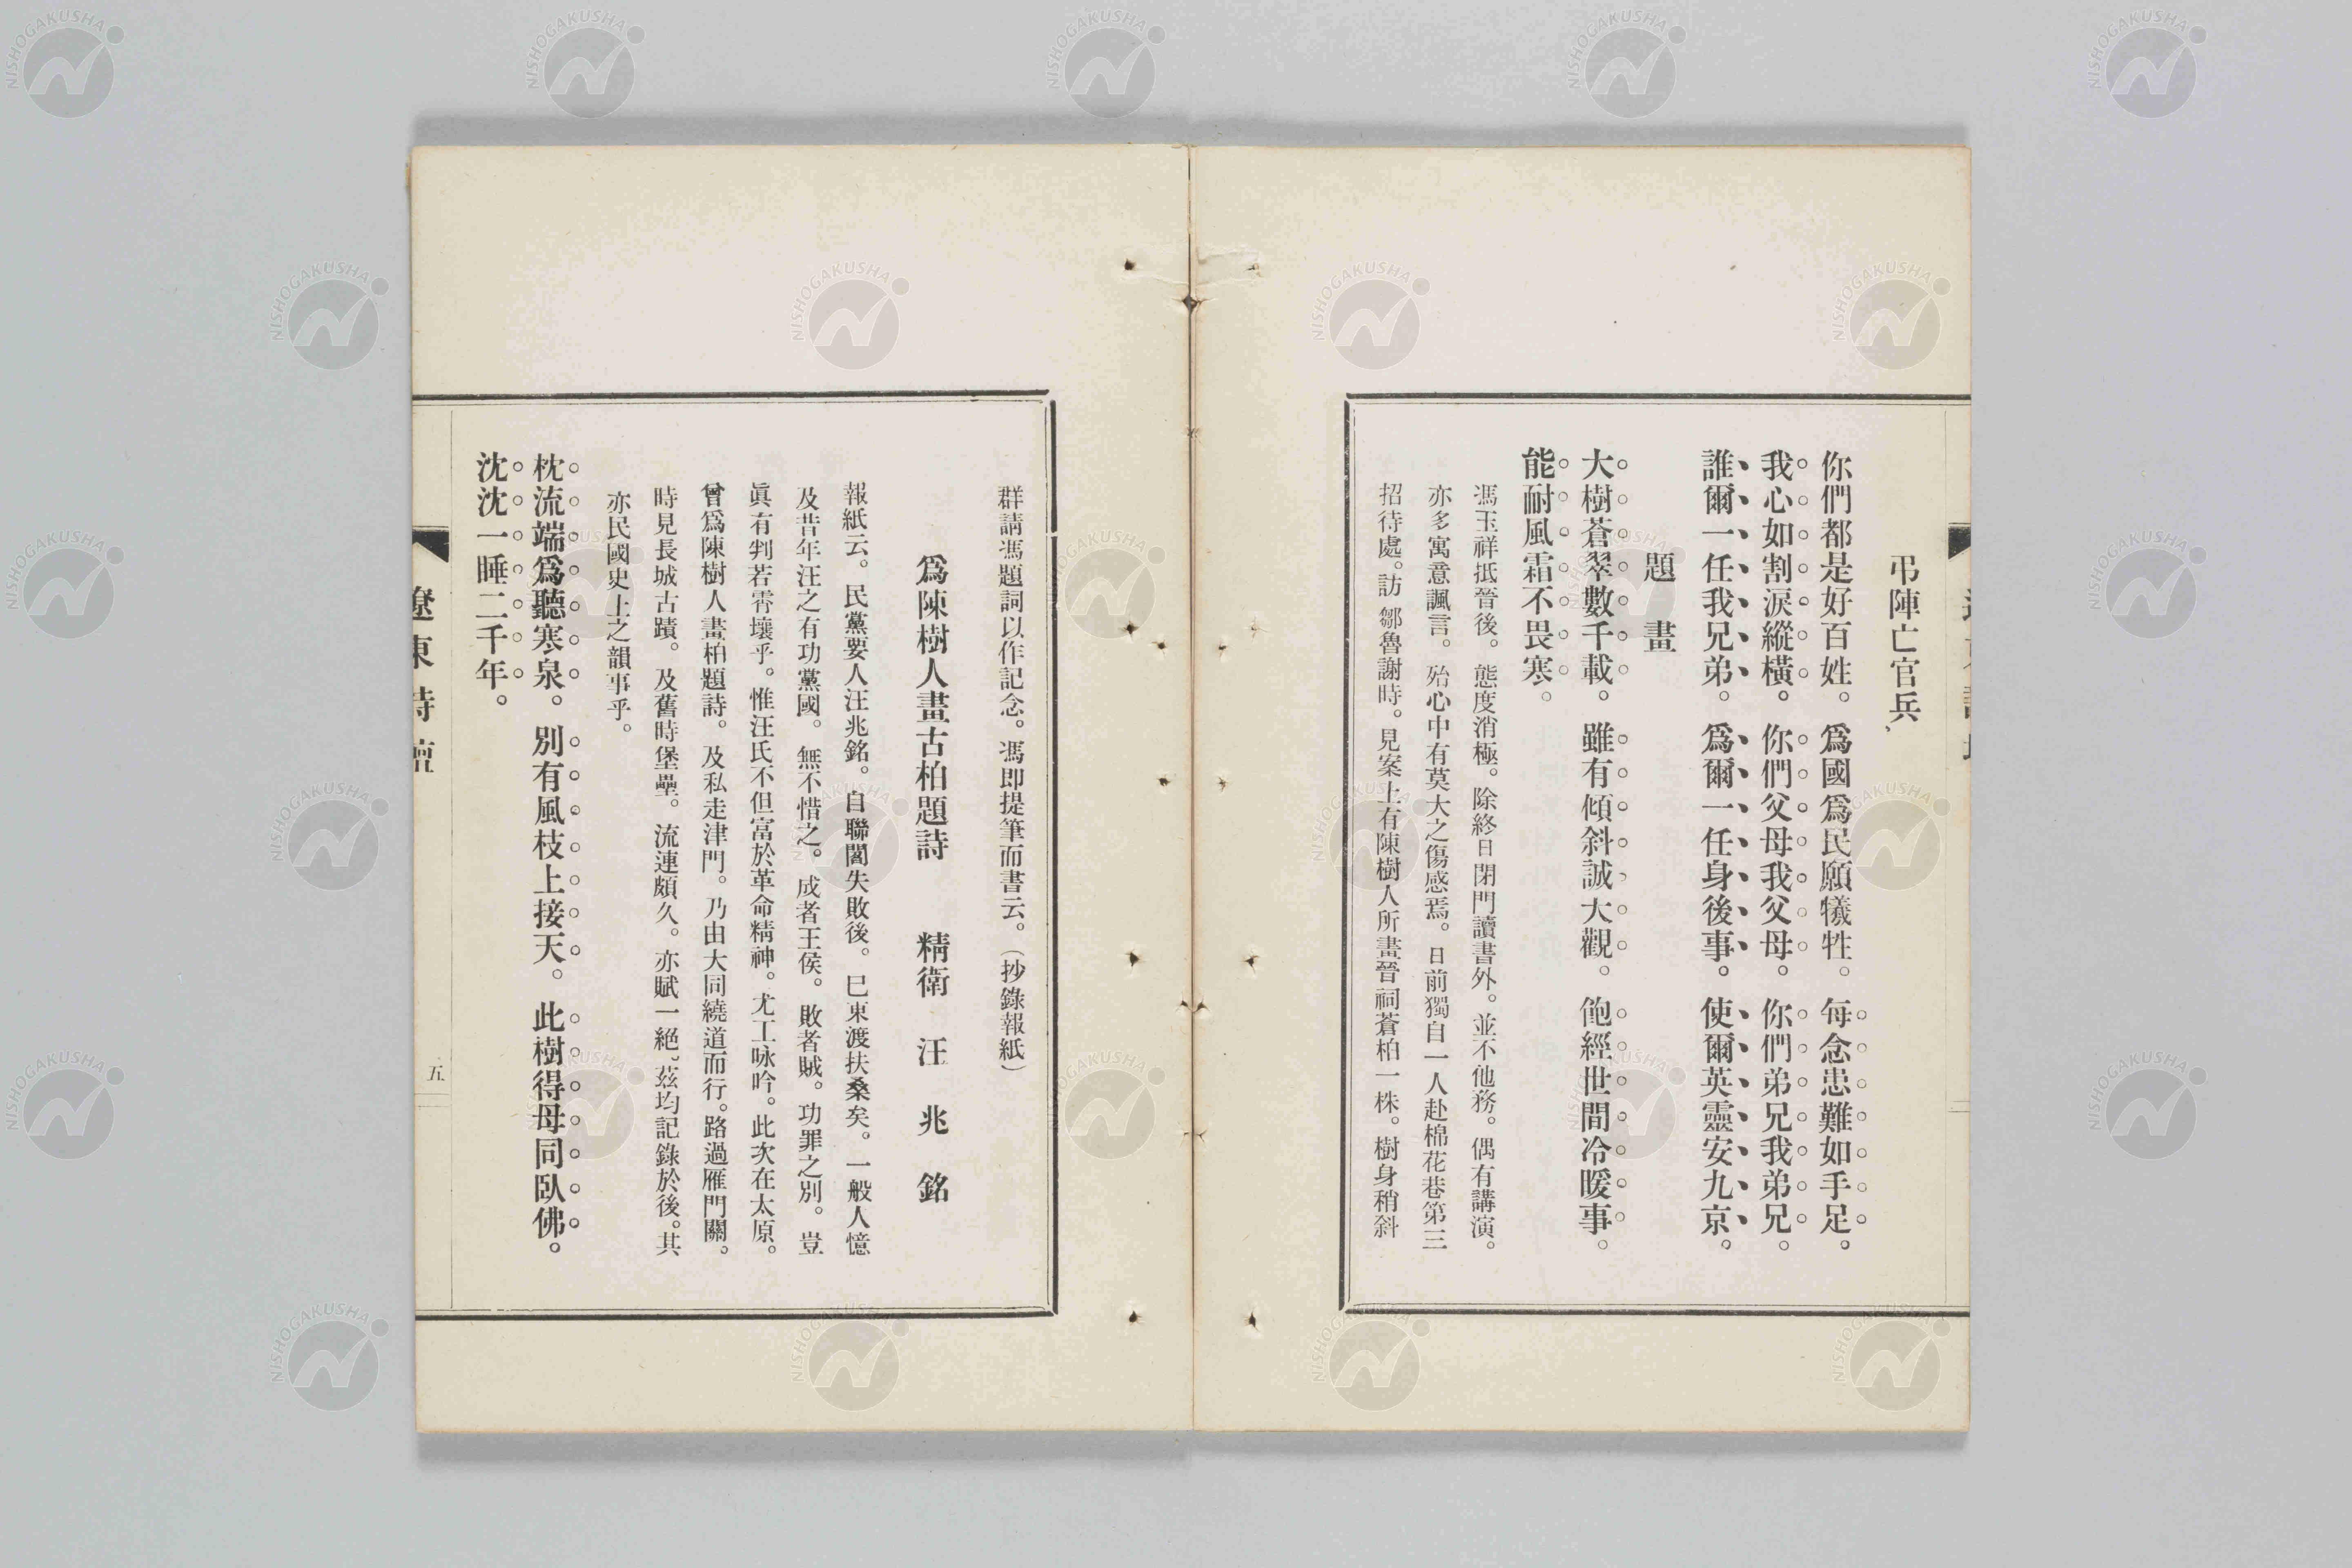 弔陣亡官兵
你們都是好百姓。爲國爲民願犧牲。每念患難如手足。
我心如割淚縱橫。你們父母我父母。你們弟兄我弟兄。
誰爾一任我兄弟。爲爾一任身後事。使爾英靈安九京。
題畫
大樹蒼翠數千載。雖有傾斜誠大觀。飽經世間冷暖事。
能耐風霜不畏寒。
馮玉祥抵晉後。態度消極。除終日閉門讀書外。並不他務。偶有講演。
亦多寓意諷言。殆心中有莫大之傷感焉。日前獨自一人赴棉花巷第三
招待處。訪鄒魯謝時。見案上有陳樹人所畫晉祠蒼柏一株。樹身稍斜
群請馮題詞以作記念。馮即提筆而書云。(抄錄報紙)
爲陳樹人畫古柏題詩 精衛 汪兆銘
報紙云。民黨要人汪兆銘。自聯閻失敗後。已東渡扶桑矣。一般人憶
及昔年汪之有功黨國。無不惜之。成者王侯。敗者賊。功罪之別。豈
眞有判若霄壤乎。惟汪氏不但富於革命精神。尤工咏吟。此次在太原。
曾爲陳樹人畫柏題詩。及私走津門。乃由大同繞道而行。路過雁門關。
時見長城古蹟。及舊時堡壘。流連頗久。亦賦一絕。茲均記錄於後。其
亦民國史上之韻事乎。
枕流端爲聽寒泉。別有風枝上接天。此樹得母同臥佛。
沈沈一睡二千年。
遼東詩壇
五
NISHOGAKUSHA